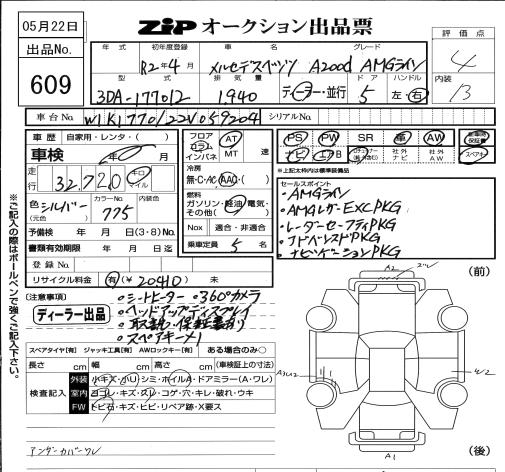 05月22日
出品No.
609
ZIP オークション出品票
評価点
4
内装
B
年式 初年度登録 車名 グレード
R2年4月 メルセデスベンツ A200d AMGライン
型式 排気量 ドア ハンドル
3DA-177012 1940 ディーラー・並行 5 左・右
車台No. W1K1770122V059204 シリアルNo.
車歴 自家用・レンタ( )
車検 年 月
走行 32,720 キロ マイル
色(元色) シルバー カラーNo. 775 内装色
予備検 年 月 日(3・8)No.
書類有効期限 年 月 日迄
登録No.
リサイクル料金 有(¥20410) 未
フロア コラム インパネ AT MT 速
冷房
無・C・AC・AAC・( )
燃料
ガソリン・軽油・電気・その他( )
Nox 適合・非適合
乗車定員 5 名
PS PW SR 革 AW
ナビ エアB 社外ナビ 社外AW スペアキー
※上記太枠内は標準装備品
セールスポイント
・AMGライン
・AMGレザーEXCPKG
・レーダーセーフティPKG
・アドバンスドPKG
・ナビゲーションPKG
[注意事項]
ディーラー出品
・シートヒーター ・360°カメラ
・ヘッドアップディスプレイ
・取説・保証書有り
・スペアキー×1
スペアタイヤ[有] ジャッキ工具[有] AWロックキー[有] ある場合のみ○
長さ cm 幅 cm 高さ cm (車検証上の寸法)
検査記入
外装 小キズ・ハリ・シミ・ホイルA・ドアミラー(A・ワレ)
室内 ヨゴレ・キズ・スレ・コゲ・穴・キレ・破れ・ウキ
FW トビ石・キズ・ヒビ・リペア跡・X要ス
アンダーカバーワレ
※ご記入の際はボールペンで強くご記入下さい。
(前)
A2
A1
(後)